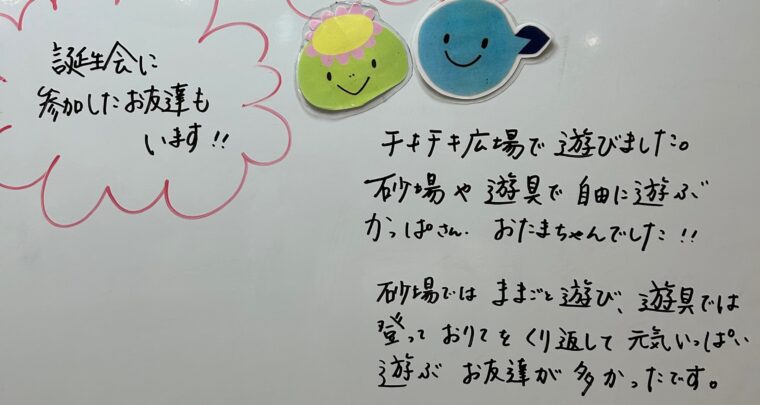 誕生会に
参加したお友達も
います!!
チキチキ広場で遊びました。
砂場や遊具で自由に遊ぶ
かっぱさん、おたまちゃんでした!!
砂場ではままごと遊び、遊具では
登っており​てをくり返して元気いっぱい
遊ぶお友達が多かったです。